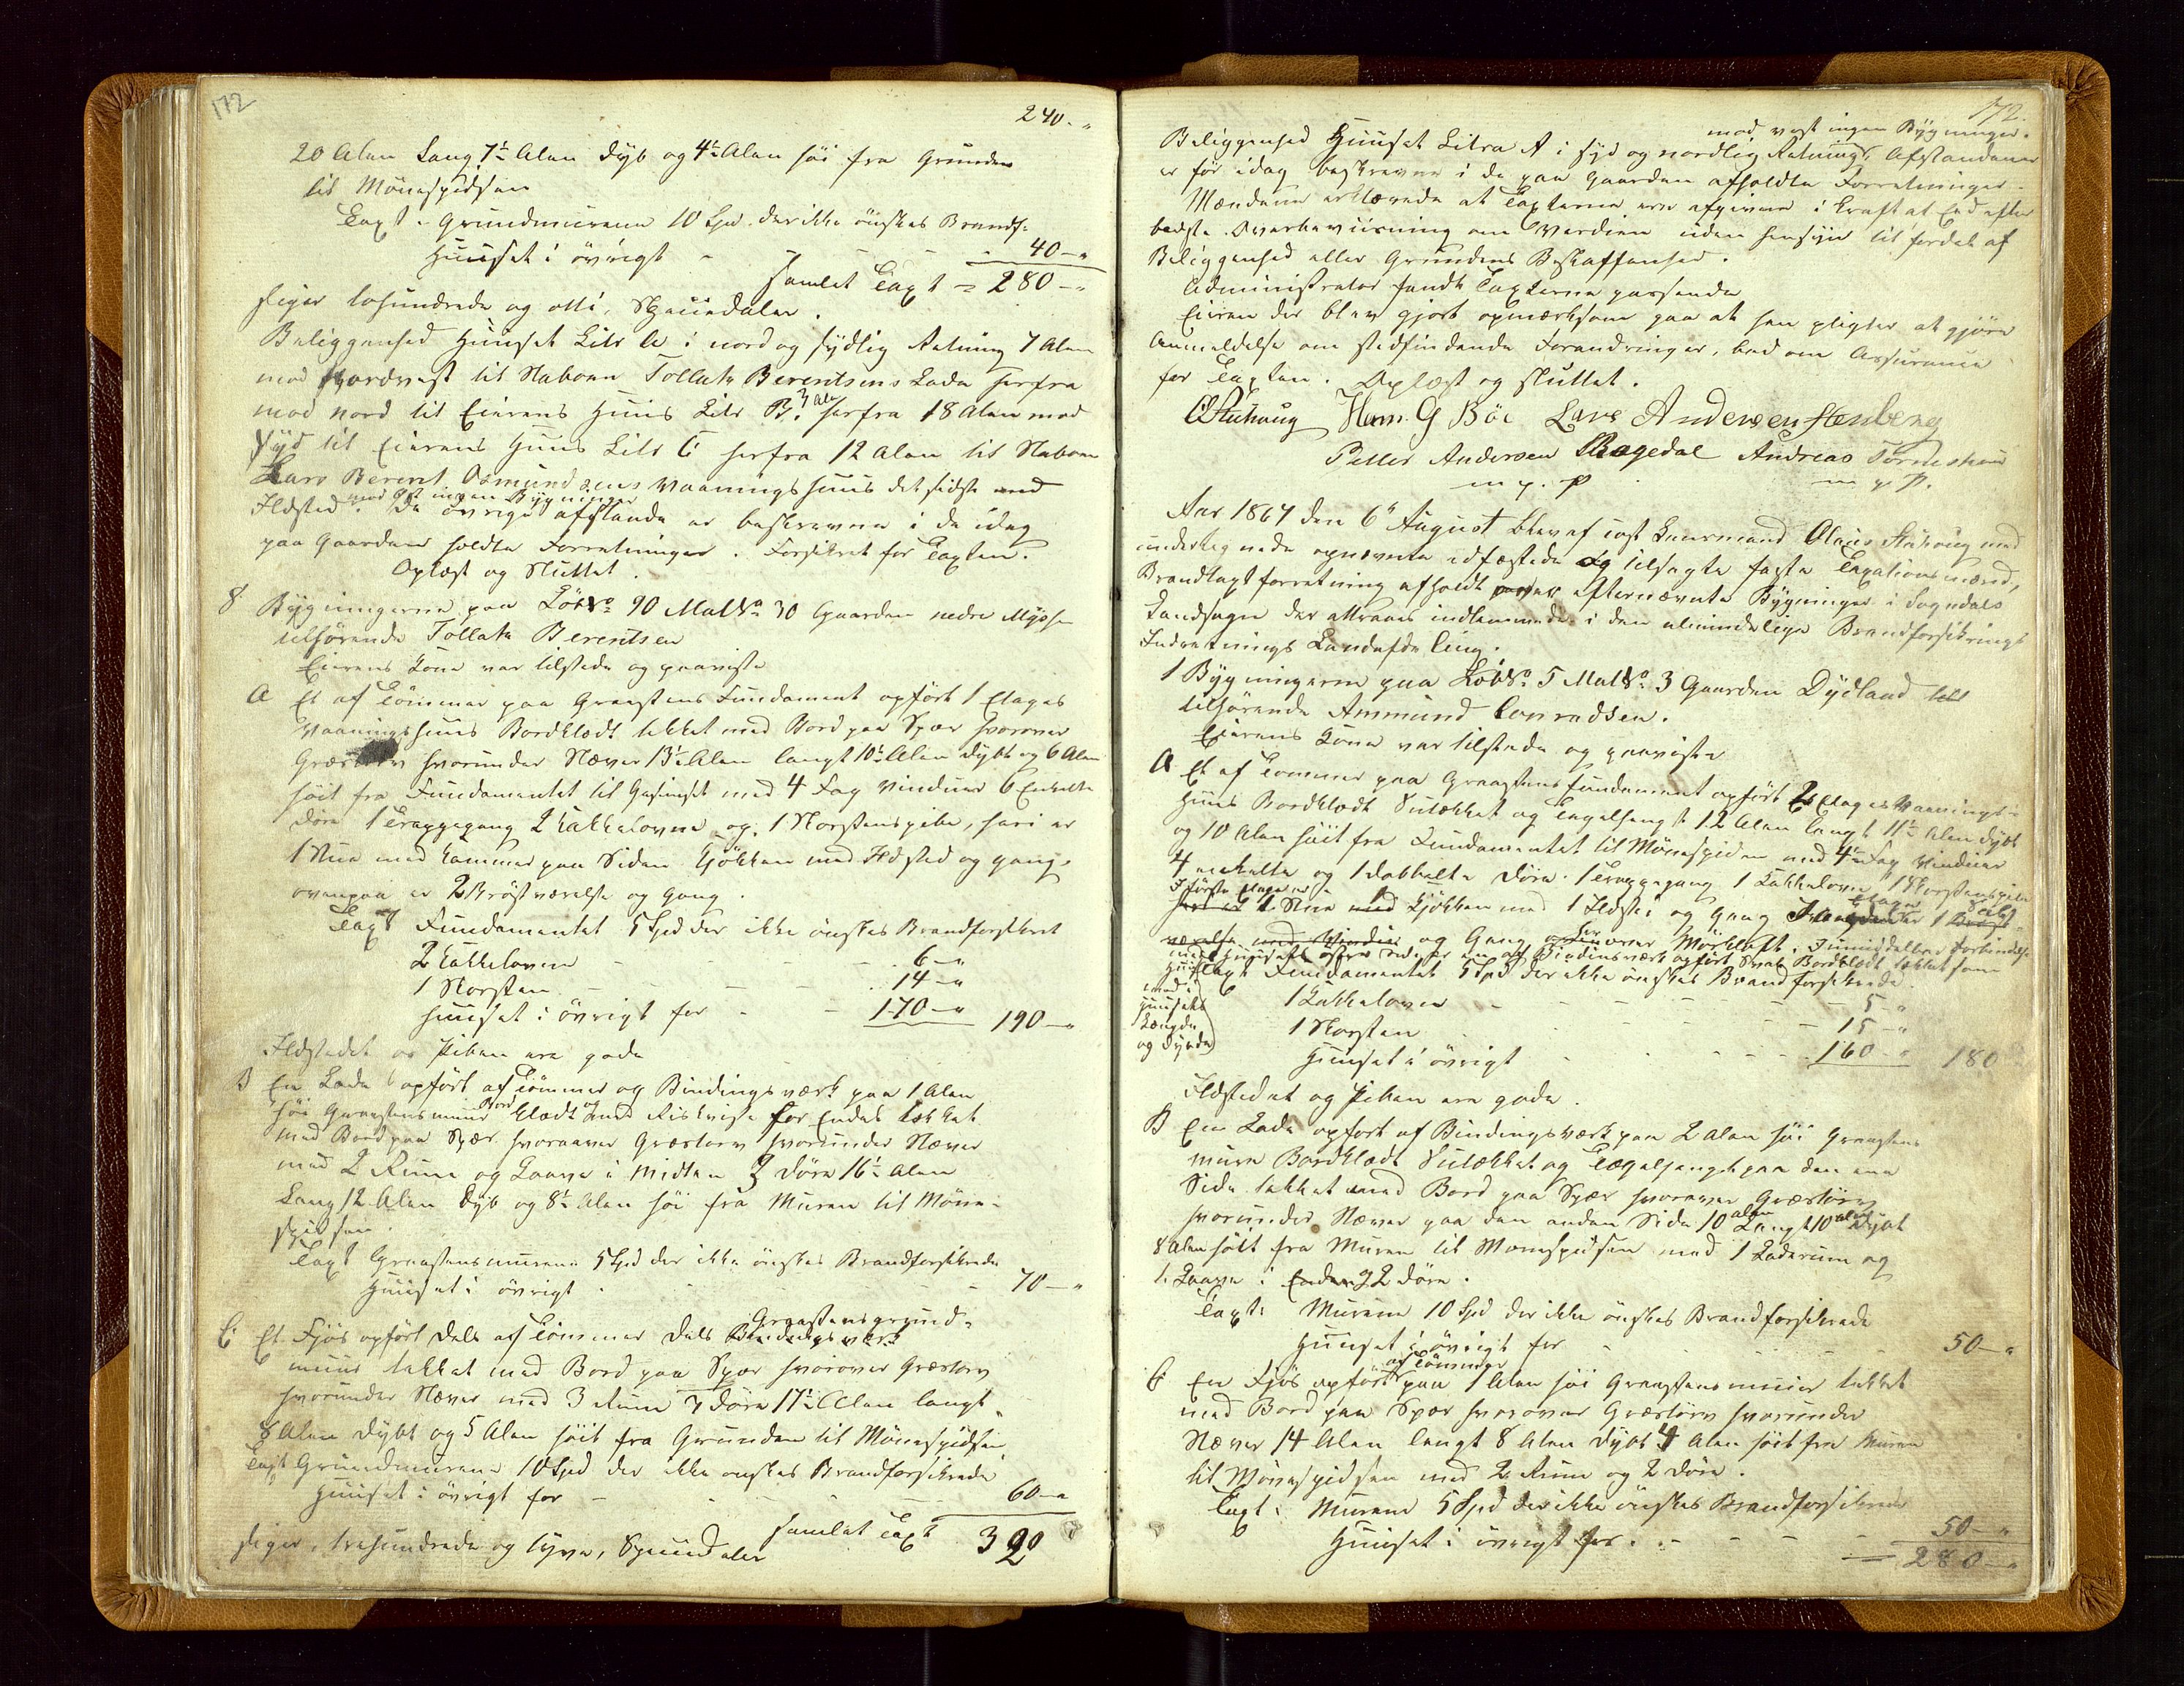 172
240 - „
20 Alen Lang 7½ Alen dyb og 4½ Alen høi fra Grunden
til Mønespidsen
Taxt - Grundmurene 10 Spd. der ikke ønskes Brandf.
Huuset i øvrigt - - - 40 - „
Samlet Taxt = 280 - „
siger tohundrede og otti, Speciedaler.
Beliggenhed Huuset Litr A i nord og sydlig Retning 7 Alen
mod Nordvest til Naboen Tollak Berentsens Lade herfra
mod Nord til Eierens Huus Litr B. 3 Alen herfra 18 Alen mod
Syd til Eierens Huus Litr C herfra 12 Alen til Naboen
Lars Berent Osmundsens Vaaningshuus det sidste med
Ildsted. mod Øst ingen Bygninger De øvrige afstande er beskrevne i de idag
paa Gaarden holdte Forretninger. Forsikret for Taxten.
Oplæst og Sluttet.
8 Bygningerne paa LøbNo 90 MatNo 30 Gaarden nedre Mysse
tilhørende Tollak Berentsen
Eierens Kone var tilstede og paaviste
A Et af Tømmer paa Graastens Fundament opført 1 Etages
Vaaningshuus Bordklædt tækket med Bord paa Spær hvorover
Græstorv hvorunder Næver 13½ Alen langt 10½ Alen dybt og 6 Alen
høit fra Fundamentet til Gesimset med 4 Fag Vinduer 6 Enkelte
Døre 1 Trappegang 2 Kakkelovne og 1 Skorstenspibe, heri er
1 Stue med Kammer paa Siden Kjøkken med Ildsted og gang.
ovenpaa er 2 Brøstværelse og Gang.
Taxt Fundamentet 5 Spd der ikke ønskes Brandforsikret
2 Kakkelovne - - - 6 - „
1 Skorsten - - - 14 - „
Huuset i øvrigt for - - 170 - „ 190 - „
Ildstedet og Piben ere gode
B En Lade opført af Tømmer og Bindingsværk paa 1 Alen
høi Graastensmuur Bordklædt og med Riskvist for Endet tækket
med Bord paa Spær hvorover Græstorv hvorunder Næver
med 2 Rum og Laave i Midten 3 Døre 16½ Alen
Lang 12 Alen dyb og 8½ Alen høi fra Muren til Møne-
spidsen.
Taxt Graastensmuren 5 Spd der ikke ønskes Brandforsikrede
Huuset i øvrigt - - 70 - „
C Et Fjøs opført dels af Tømmer dels Bindingsværk Graastensgrund-
muur tækket med Bord paa Spær hvorover Græstorv
hvorunder Næver med 3 Rum 3 Døre 17½ Alen langt
8 Alen dybt og 5 Alen høit fra Grunden til Mønespidsen
Taxt Grundmurene 10 Spd der ikke ønskes Brandforsikrede
Huuset i øvrigt for - - - 60 - „
Samlet Taxt 320
siger, trehundrede og tyve, Speciedaler
172.
mod vest ingen Bygninger.
Beliggenhed Huuset Litra A i syd og nordlig Retning, Afstandene
er før idag beskrevne i de paa Gaarden afholdte Forretninger.
Mændene erklærede at Taxterne ere afgivne i Kraft af Eed efter
bedste Overbeviisning om Værdien uden hensyn til fordel af
Beliggenhed eller Grundens Beskaffenhed.
Administrator fandt Taxterne passende
Eieren der blev gjort opmærksom paa at han pligter at gjøre
Anmeldelse om stedfindende Forandringer, bad om Assurance
for Taxten. Oplæst og sluttet.
OStuhaug Hans G Böe Lars Andersen Stenberg
Petter Andersen Ragedal Andreas
m. p. P m p P.
Aar 1867 den 6te August blev af constitueret Leensmand Olaus Stuhoug med
undertegnede opnævnte edfæstede og tilsagte faste Taxationsmænd,
Brandtaxtforretning afholdt over efternævnte Bygninger i Sogndals
Landsogn der attraaes indlemmede i den almindelige Brandforsikrings
Indretnings Landafdeling.
1 Bygningerne paa LøbNo. 5 MatNo. 3 Gaarden Dydland
tilhørende Ammund Conradsen.
Eierens Kone var tilstede og paaviste
A Et af Tømmer paa Graastensfundament opført 2 Etages Vaanings-
Huus Bordklædt Sutækket og Tagelhengt 12 Alen langt 11½ Alen dybt
og 10 Alen høit fra Fundamentet til Mønespidsen med 4 Fag Vinduer
4 enkelte og 1 dobbelte Døre. 1 Trappegang 1 Kakkelovn 1 Skorstenspibe
I første Etage er 1 Stue med Kjøkken med 1 Ildsted og Gang
værelse med Vindue og Gang hvorover Mørkloft.
Taxt Fundamentet 5 Spd der ikke ønskes Brandforsikrede.
med i
Huusets
Længde
og Dybde
1 Kakkelovn - - - 5 - „
1 Skorsten - - - 15 - „
Huuset i øvrigt - - - 160 - „ 180
Ildstedet og Piben ere gode.
B En Lade opført af Bindingsværk paa 2 Alen høi Graastens
muur Bordklædt Sutækket og Tægelhengt paa den ene
Side tækket med Bord paa Spær hvorover Græstørv
hvorunder Næver paa den anden Side 10 Alen Langt 10 Alen Dybt
8 Alen høit fra Muren til Mønespidsen med 1 Laderum og
1 Laave i Enden 2 Døre.
Taxt: Murene 10 Spd der ikke ønskes Brandforsikrede
Huuset i øvrigt for - - - 50 - „
C En Fjøs opført af Tømmer paa 1 Alen høi Graastensmuur tækket
med Bord paa Spær hvorover Græstørv hvorunder
Næver 14 Alen langt 8 Alen dybt 4 Alen høit fra Muren
til Mønespidsen med 2 Rum og 2 Døre.
Taxt: Murene 5 Spd der ikke ønskes Brandforsikrede
Huuset i øvrigt for - - - 50 - „
280 - „